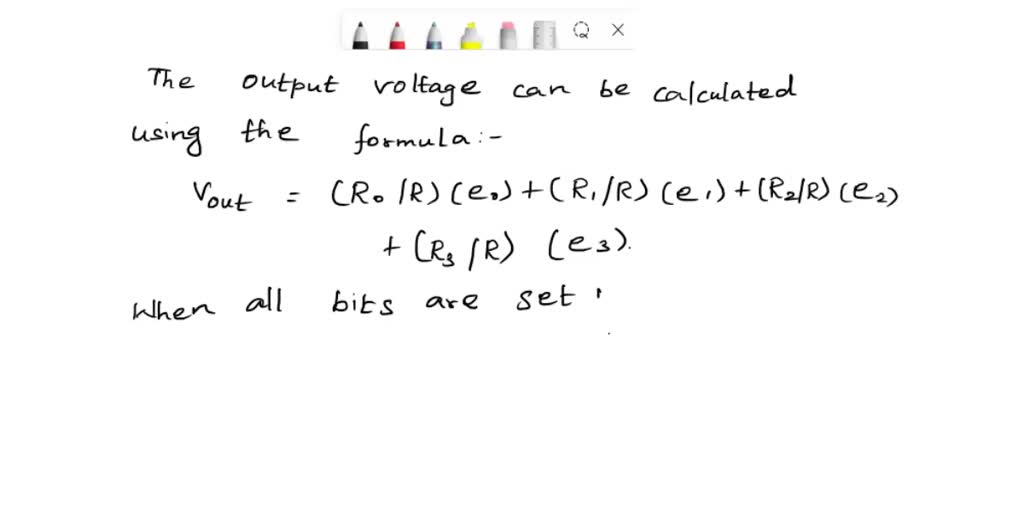 The output voltage can be calculated
using the formula:-
Vout = (R₀/R)(e₀)+(R₁/R)(e₁)+(R₂/R)(e₂)
+(R₃/R) (e₃).
When all bits are set